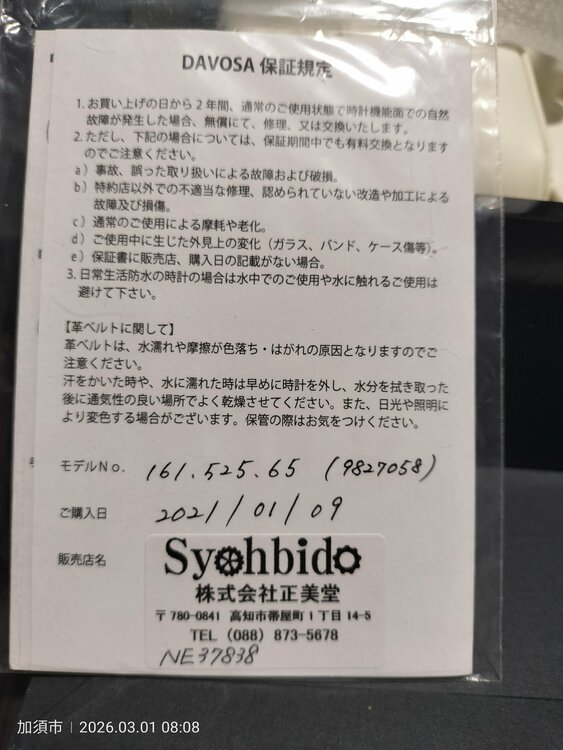 DAVOSA 保証規定
1. お買い上げの日から2年間、通常のご使用状態で時計機能面での自然
故障が発生した場合、無償にて、修理、又は交換いたします。
2. ただし、下記の場合については、保証期間中でも有料交換となります
のでご注意ください。
a）事故、誤った取り扱いによる故障および破損。
b）特約店以外での不適当な修理、認められていない改造や加工による
故障及び損傷。
c）通常のご使用による摩耗や老化。
d）ご使用中に生じた外見上の変化（ガラス、バンド、ケース傷等）。
e）保証書に販売店、購入日の記載がない場合。
3. 日常生活防水の時計の場合は水中でのご使用や水に触れるご使用は
避けて下さい。
【革ベルトに関して】
革ベルトは、水濡れや摩擦が色落ち・はがれの原因となりますのでご
注意ください。
汗をかいた時や、水に濡れた時は早めに時計を外し、水分を拭き取った
後に通気性の良い場所でよく乾燥させてください。また、日光や照明に
より変色する場合がございます。保管の際はお気をつけください。
モデルNo. 161.525.65 (9827058)
ご購入日 2021/01/09
販売店名 Syohbido
株式会社正美堂
〒780-0841 高知市帯屋町1丁目14-5
TEL (088) 873-5678
NE37838
加須市 | 2026.03.01 08:08